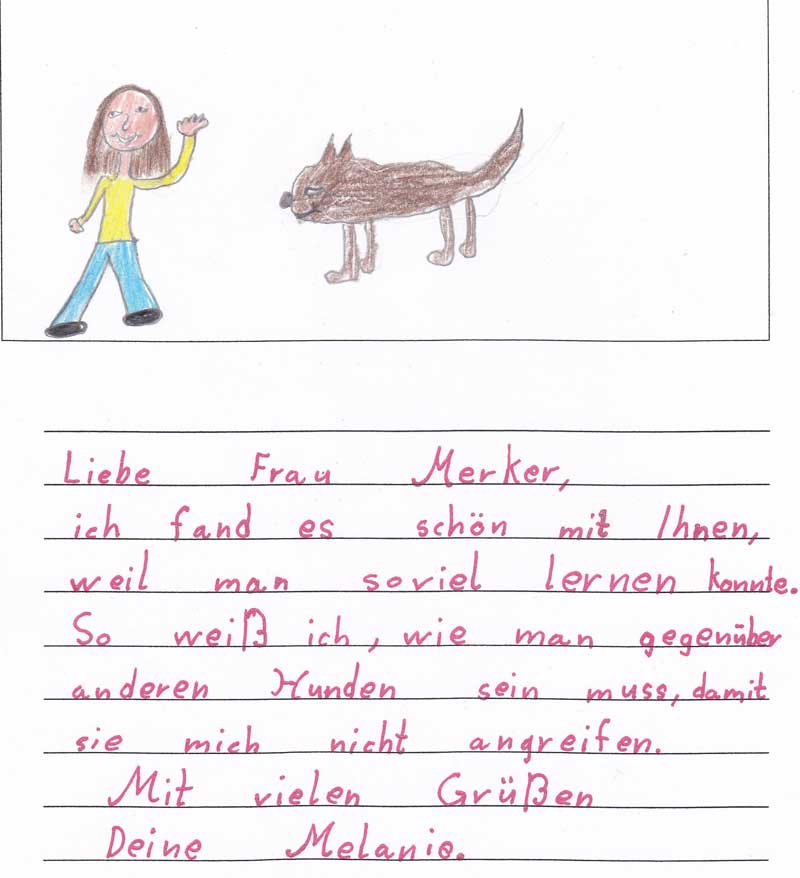 Liebe Frau Merker,
ich fand es schön mit Ihnen,
weil man soviel lernen konnte.
So weiß ich, wie man gegenüber
anderen Hunden sein muss, damit
sie mich nicht angreifen.
Mit vielen Grüßen
Deine Melanie.